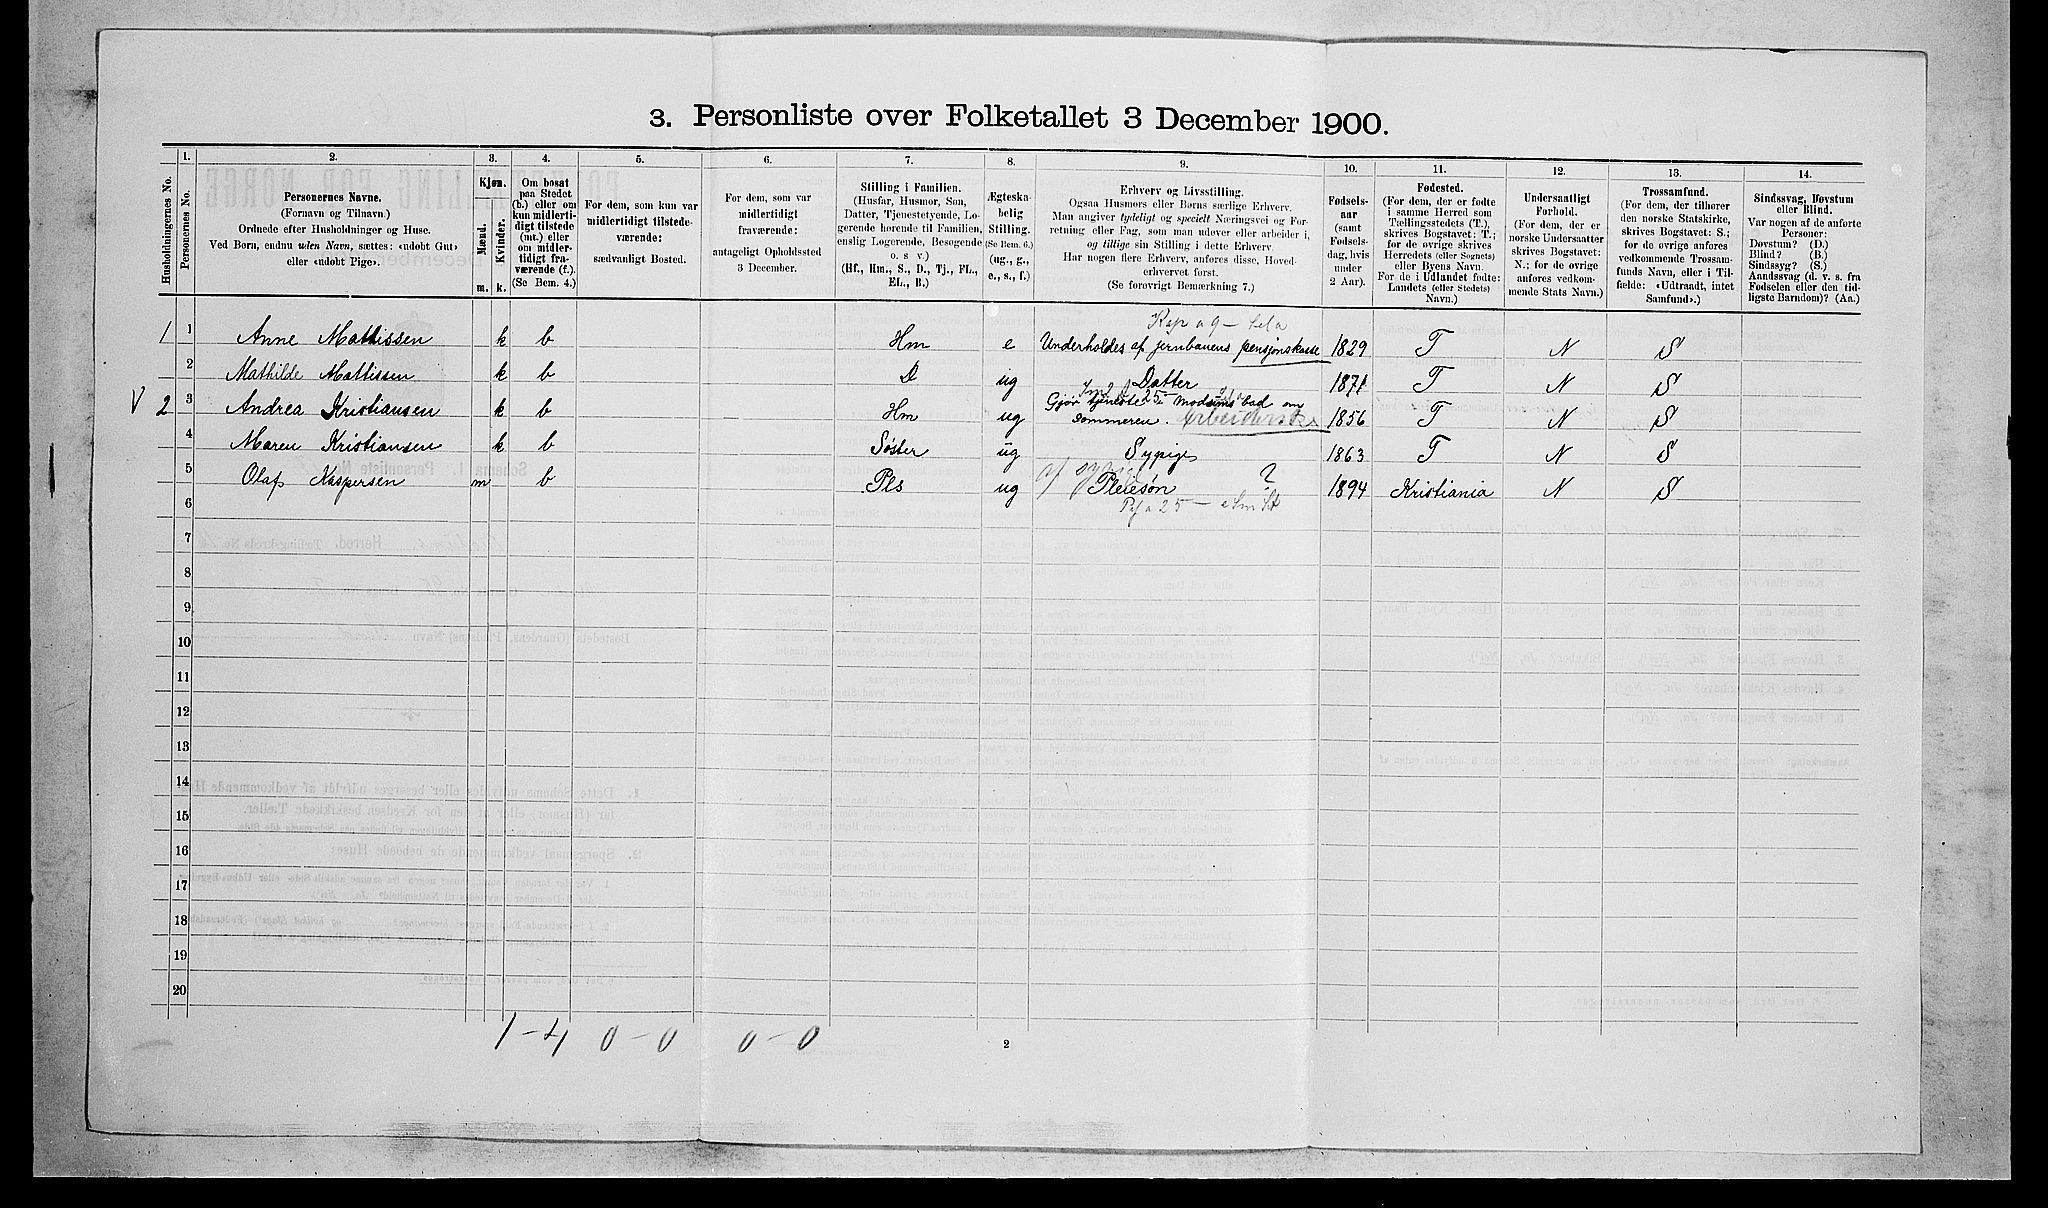 3. Personliste over Folketallet 3 December 1900.
1. 2. 3. 4. 5. 6. 7. 8. 9. 10. 11. 12. 13. 14.
Husholdningernes No.
Personernes No.
Personernes Navne.
(Fornavn og Tilnavn.)
Ordnede efter Husholdninger og Huse.
Ved Børn, endnu uden Navn, sættes: «udøbt Gut»
eller «udøbt Pige».
Kjøn.
Mænd.
Kvinder.
m. k.
Om bosat
paa Stedet
(b.) eller om
kun midlerti-
digt tilstede
(mt.) eller
om midler-
tidigt fra-
værende (f.).
(Se Bem. 4.)
For dem, som kun var
midlertidigt tilstede-
værende:
sædvanligt Bosted.
For dem, som var
midlertidigt
fraværende:
antageligt Opholdssted
3 December.
Stilling i Familien.
(Husfar, Husmor, Søn,
Datter, Tjenestetyende, Lo-
gerende hørende til Familien,
enslig Logerende, Besøgende
o. s. v.)
(Hf., Hm., S., D., Tj., FL.,
EL., B.)
Ægteska-
belig
Stilling.
(Se Bem. 6.)
(ug., g.,
e., s., f.)
Erhverv og Livsstilling.
Ogsaa Husmors eller Børns særlige Erhverv.
Man angiver tydeligt og specielt Næringsvei og For-
retning eller Fag, som man udøver eller arbeider i,
og tillige sin Stilling i dette Erhverv.
Har nogen flere Erhverv, anføres disse, Hoved-
erhvervet først.
(Se forøvrigt Bemærkning 7.)
Fødsels-
aar
(samt
Fødsels-
dag, hvis
under
2 Aar).
Fødested.
(For dem, der er fødte
i samme Herred som
Tællingsstedets (T.),
skrives Bogstavet: T.;
for de øvrige skrives
Herredets (eller Sognets)
eller Byens Navn.
For de i Udlandet fødte:
Landets (eller Stedets)
Navn.)
Undersaatligt
Forhold.
(For dem, der er
norske Undersaatter
skrives Bogstavet:
N.; for de øvrige
anføres vedkom-
mende Stats Navn.)
Trossamfund.
(For dem, der tilhører
den norske Statskirke,
skrives Bogstavet: S.;
for de øvrige anføres
vedkommende Trossam-
funds Navn, eller i Til-
fælde: «Udtraadt, intet
Samfund».)
Sindssvag, Døvstum
eller Blind.
Var nogen af de anførte
Personer:
Døvstum? (D.)
Blind? (B.)
Sindssyg? (S.)
Aandssvag (d. v. s. fra
Fødselen eller den tid-
ligste Barndom)? (Aa.)
1 1 Anne Mattissen k b Hm e Underholdes af jernbanens pensjonskasse 1829 T N S
2 Mathilde Mattissen k b D ug Datter 1871 T N S
V 2 3 Andrea Kristiansen k b Hm ug Gjør tjeneste i Modums bad om
sommeren. Arbeiderske 1856 T N S
4 Maren Kristiansen k b Søster ug Sypige 1863 T N S
5 Olaf Kaspersen m b Pls ug Pleiesøn ? 1894 Kristiania N S
6
7
8
9
10
11
12
13
14
15
16
17
18
19
20
1-4 0-0 0-0
2